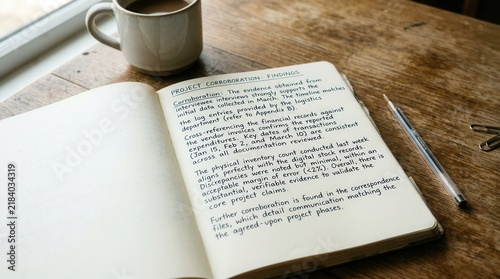 PROJECT CORROBORATION: FINDINGS
Corroboration: The evidence obtained from
interviewee interviews strongly supports the
initial data collected in March. The timeline matches
the log entries provided by the logistics
department (refer to Appendix B).
Cross-referencing the financial records against
the vendor invoices confirms the reported
expenditures. Key dates of transactions
(Jan 15, Feb 2, and March 10) are consistent
across all documentation reviewed.
The physical inventory count conducted last week
aligns perfectly with the digital stock records.
Discrepancies were noted but minimal, within an
acceptable margin of error (<2%). Overall, there is
substantial, verifiable evidence to validate the
core project claims.
Further corroboration is found in the correspondence
files, which detail communication matching the
the agreed-upon project phases.
Adobe Stock | #2184034319